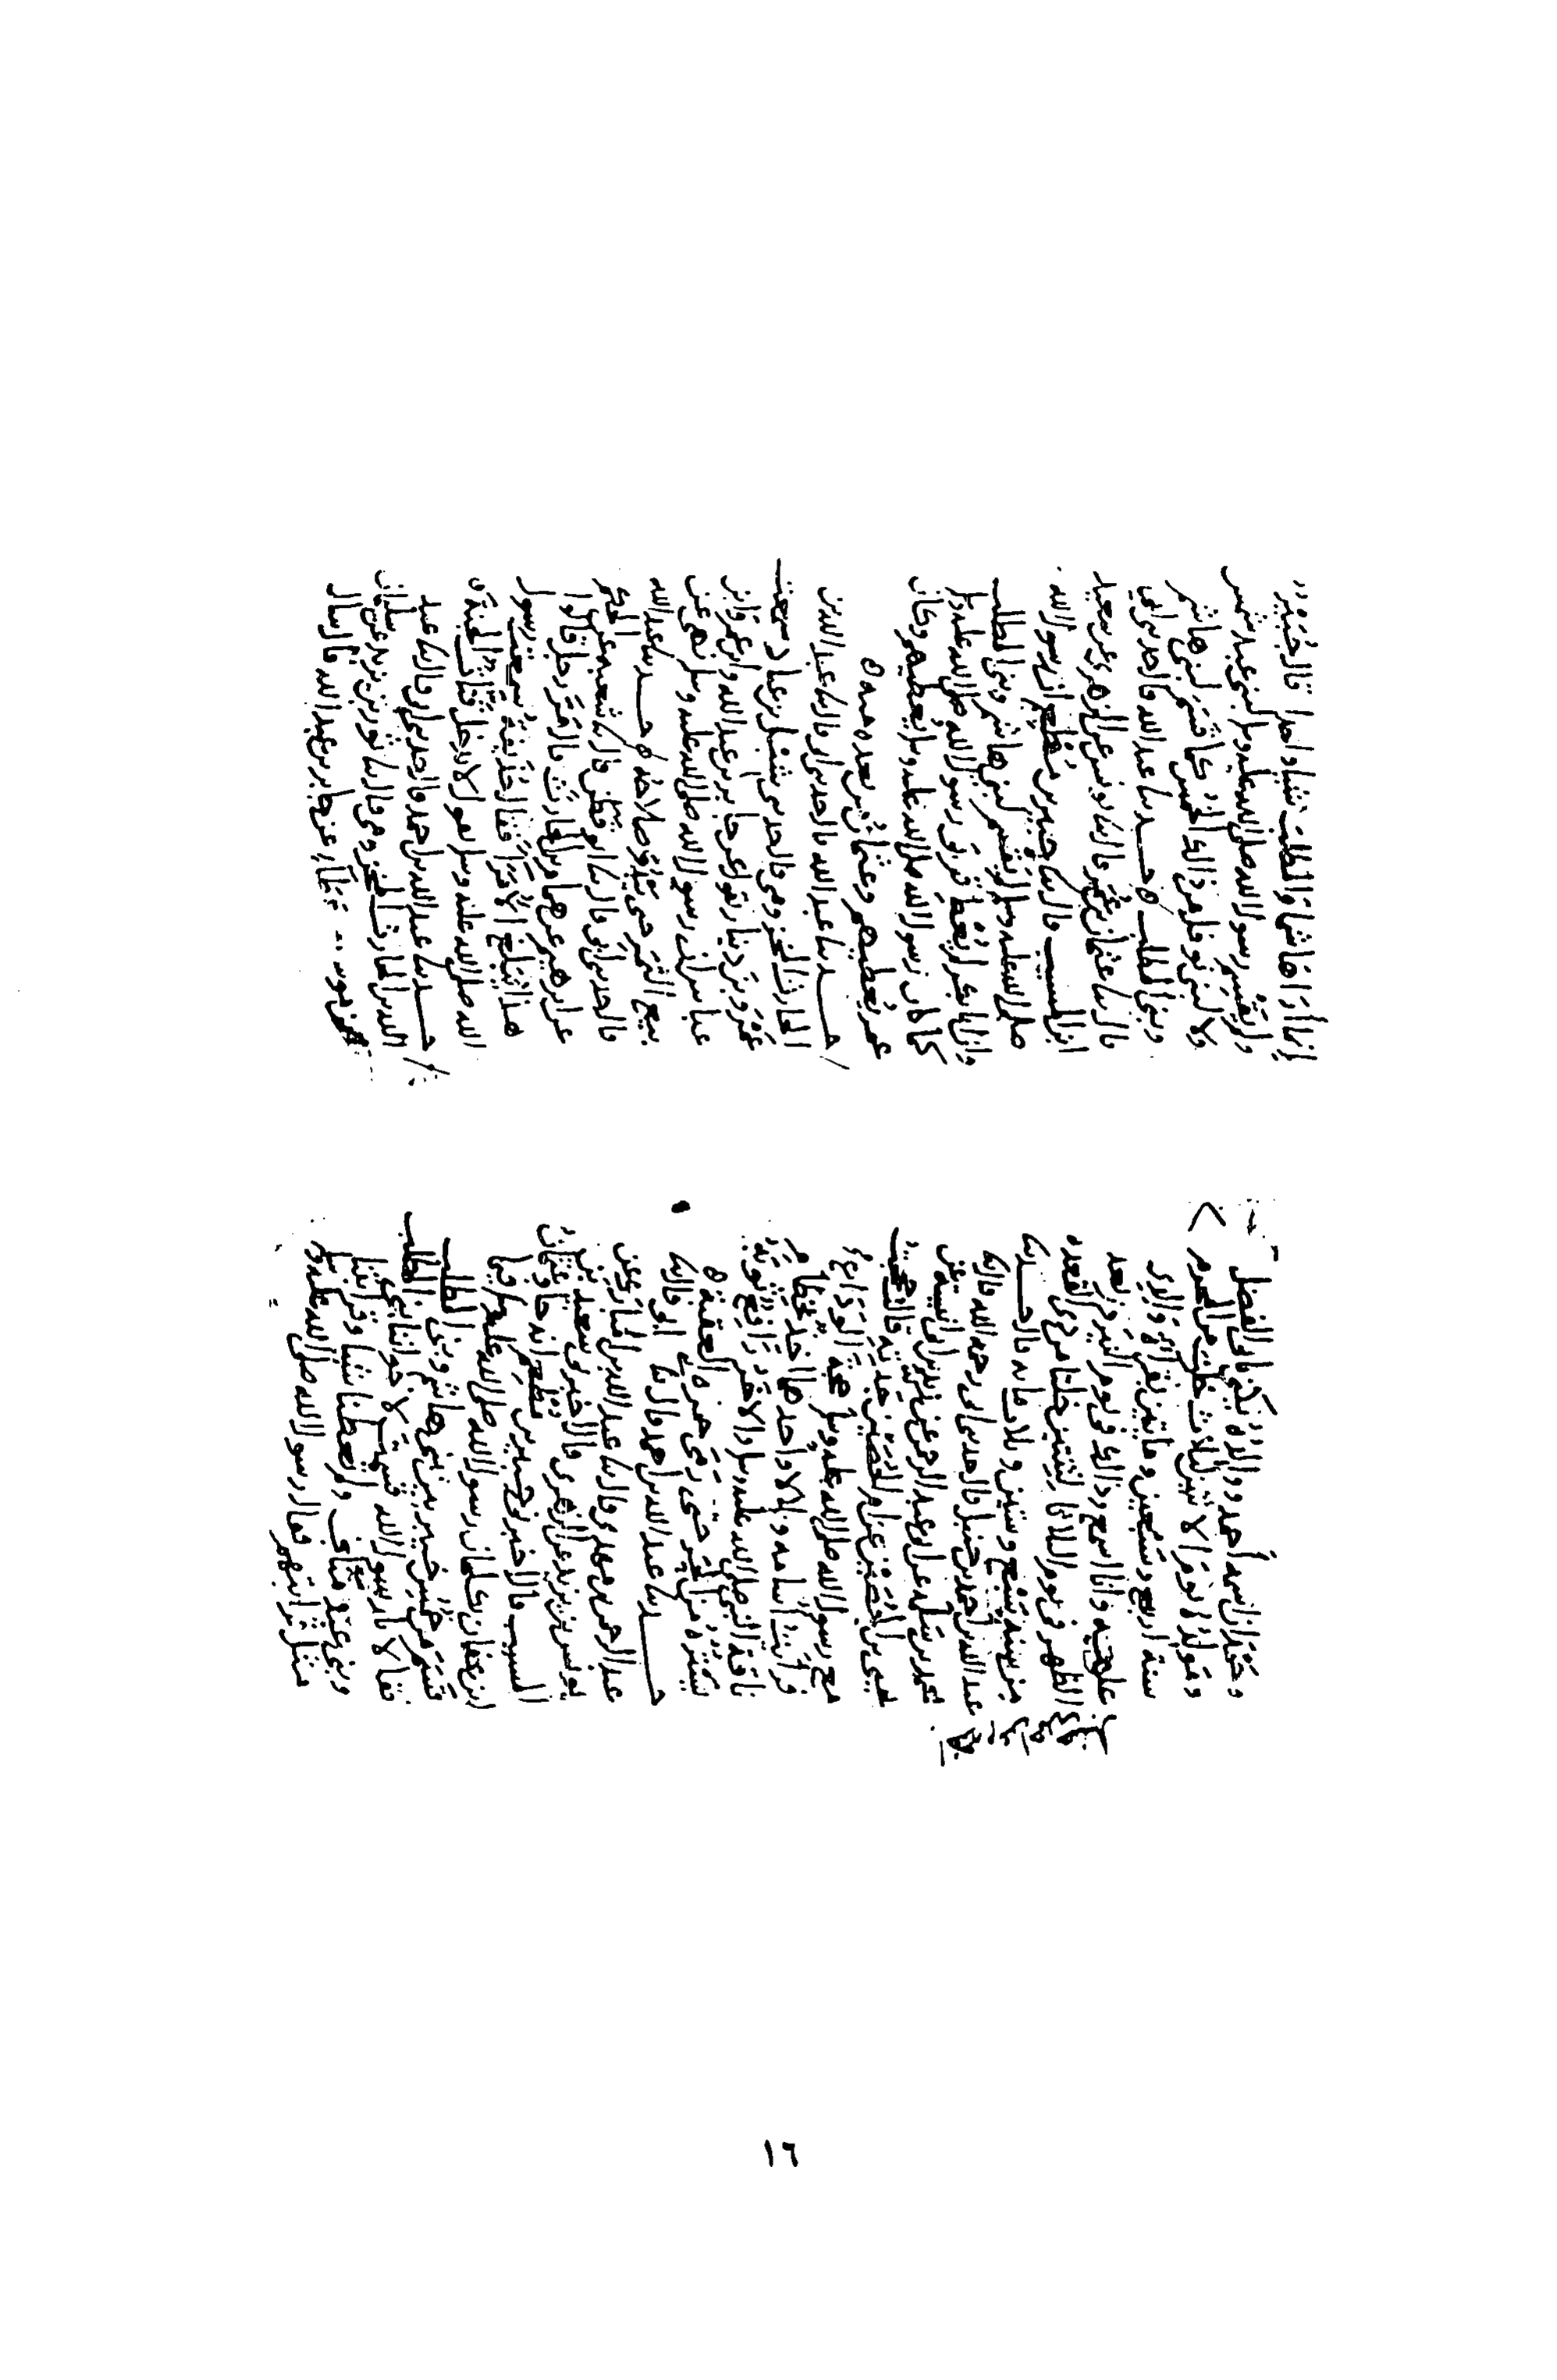 اسمه أحمد ووالده يكنى ابو الفضل
ومولده يوم الاثنين لثلاث خلت من المحرم
سنة اربع وسبعين وماتين بقراة والدي
عليه وانا اسمع وذلك في يوم بعد
الظهر في يوم الثلاثا لليلتين خلتا من ذي القعده
من سنة وستين وثلاثمايه قال حدثنا
عبد الله بن احمد بن حنبل قال حدثني ابي رحمه الله قال ثنا
محمد بن سلمة عن ابي عبد الرحيم عن زيد بن ابي انيسة عن
يحيى بن الحصين عن ام الحصين جدته قالت حججت
مع رسول الله صلى الله عليه وسلم حجة الوداع
فرأيت أسامة وبلالا واحدهما اخذ بخطام
ناقة النبي صلى الله عليه وسلم والاخر رافع ثوبه
يستره من الحر حتى رمى جمرة العقبة ه
حدثنا عبد الله بن احمد قال حدثني ابي قال ثنا
عبد الرحمن بن مهدي قال ثنا عبد الله بن المبارك عن
يونس بن يزيد عن الزهري قال اخبرني سعيد بن
المسيب قال اخبرني جبير بن مطعم انه جا وعثمان
ابن عفان يكلمان رسول الله صلى الله عليه وسلم فيما
قسم من خمس خيبر بين بني هاشم وبني المطلب
فقالا يا رسول الله قسمت لاخواننا بني المطلب
وبني عبد مناف ولم تعطنا شيئا وقرابتنا
مثل قرابتهم فقال رسول الله صلى الله عليه وسلم
إنما أرى هاشما والمطلب شيئا واحدا قال جبير
ولم يقسم رسول الله صلى الله عليه وسلم لبني عبد شمس
ولا لبني نوفل من ذلك الخمس كما قسم لبني هاشم
وبني المطلب ه حدثنا عبد الله قال حدثني ابي
قال ثنا عثمان بن عمر قال ثنا يونس عن الزهري عن سعيد
ابن المسيب قال ثنا جبير بن مطعم ان رسول الله
صلى الله عليه وسلم لم يقسم لبني هاشم وبني المطلب
وان ابا بكر لم يعط قربى رسول الله صلى الله عليه وسلم
كما كان رسول الله صلى الله عليه وسلم يعطيهم وكان
عمر يعطيهم وعثمان من بعده منه ه
حدثنا عبد الله قال حدثني ابي قال ثنا عبد الله بن
الحارث المخزومي قال حدثني شبل بن عباد سمعت
عمرو بن دينار يقول عن جابر بن عبد الله وابن عمر وابن
عباس ان رسول الله صلى الله عليه وسلم نهى عن
بيع الثمر حتى يبدو صلاحه ه حدثنا عبد الله
قال حدثني ابي قال ثنا ابو قطن قال ثنا شعبة عن الحكم
عن ابرهيم عن همام بن الحارث قال مر رجل قالوا
هذا مبلغ الأمراء فقال حذيفة سمعت رسول
الله صلى الله عليه وسلم يقول لا يدخل قتات الجنة ه
حدثنا عبد الله بن احمد قال حدثني ابي قال ثنا عبد
الله بن الحارث المخزومي قال ثنا ثور بن يزيد عن سليمان
عن جابر بن عبد الله قال سال
١٦